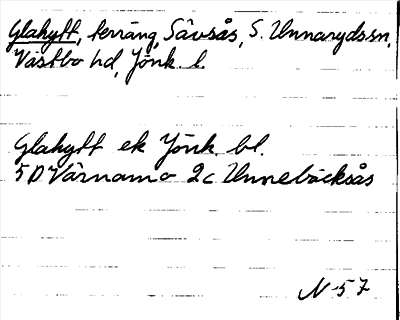 Glahytt, terräng, Sävsås, S. Unnarydssn,
Västbo hd, Jönk. l.
Glahytt ek Jönk. bl.
5D Värnamo 2c Unnebäcksås
N-57